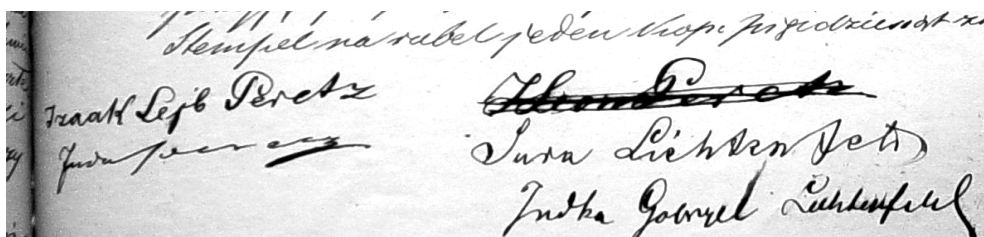 Stempel na rubel jeden kop. pięćdziesiąt
Izaak Lejb Peretz
Juda Peretz
Sura Lichtenfeld
Judka Gabryel Lichtenfeld